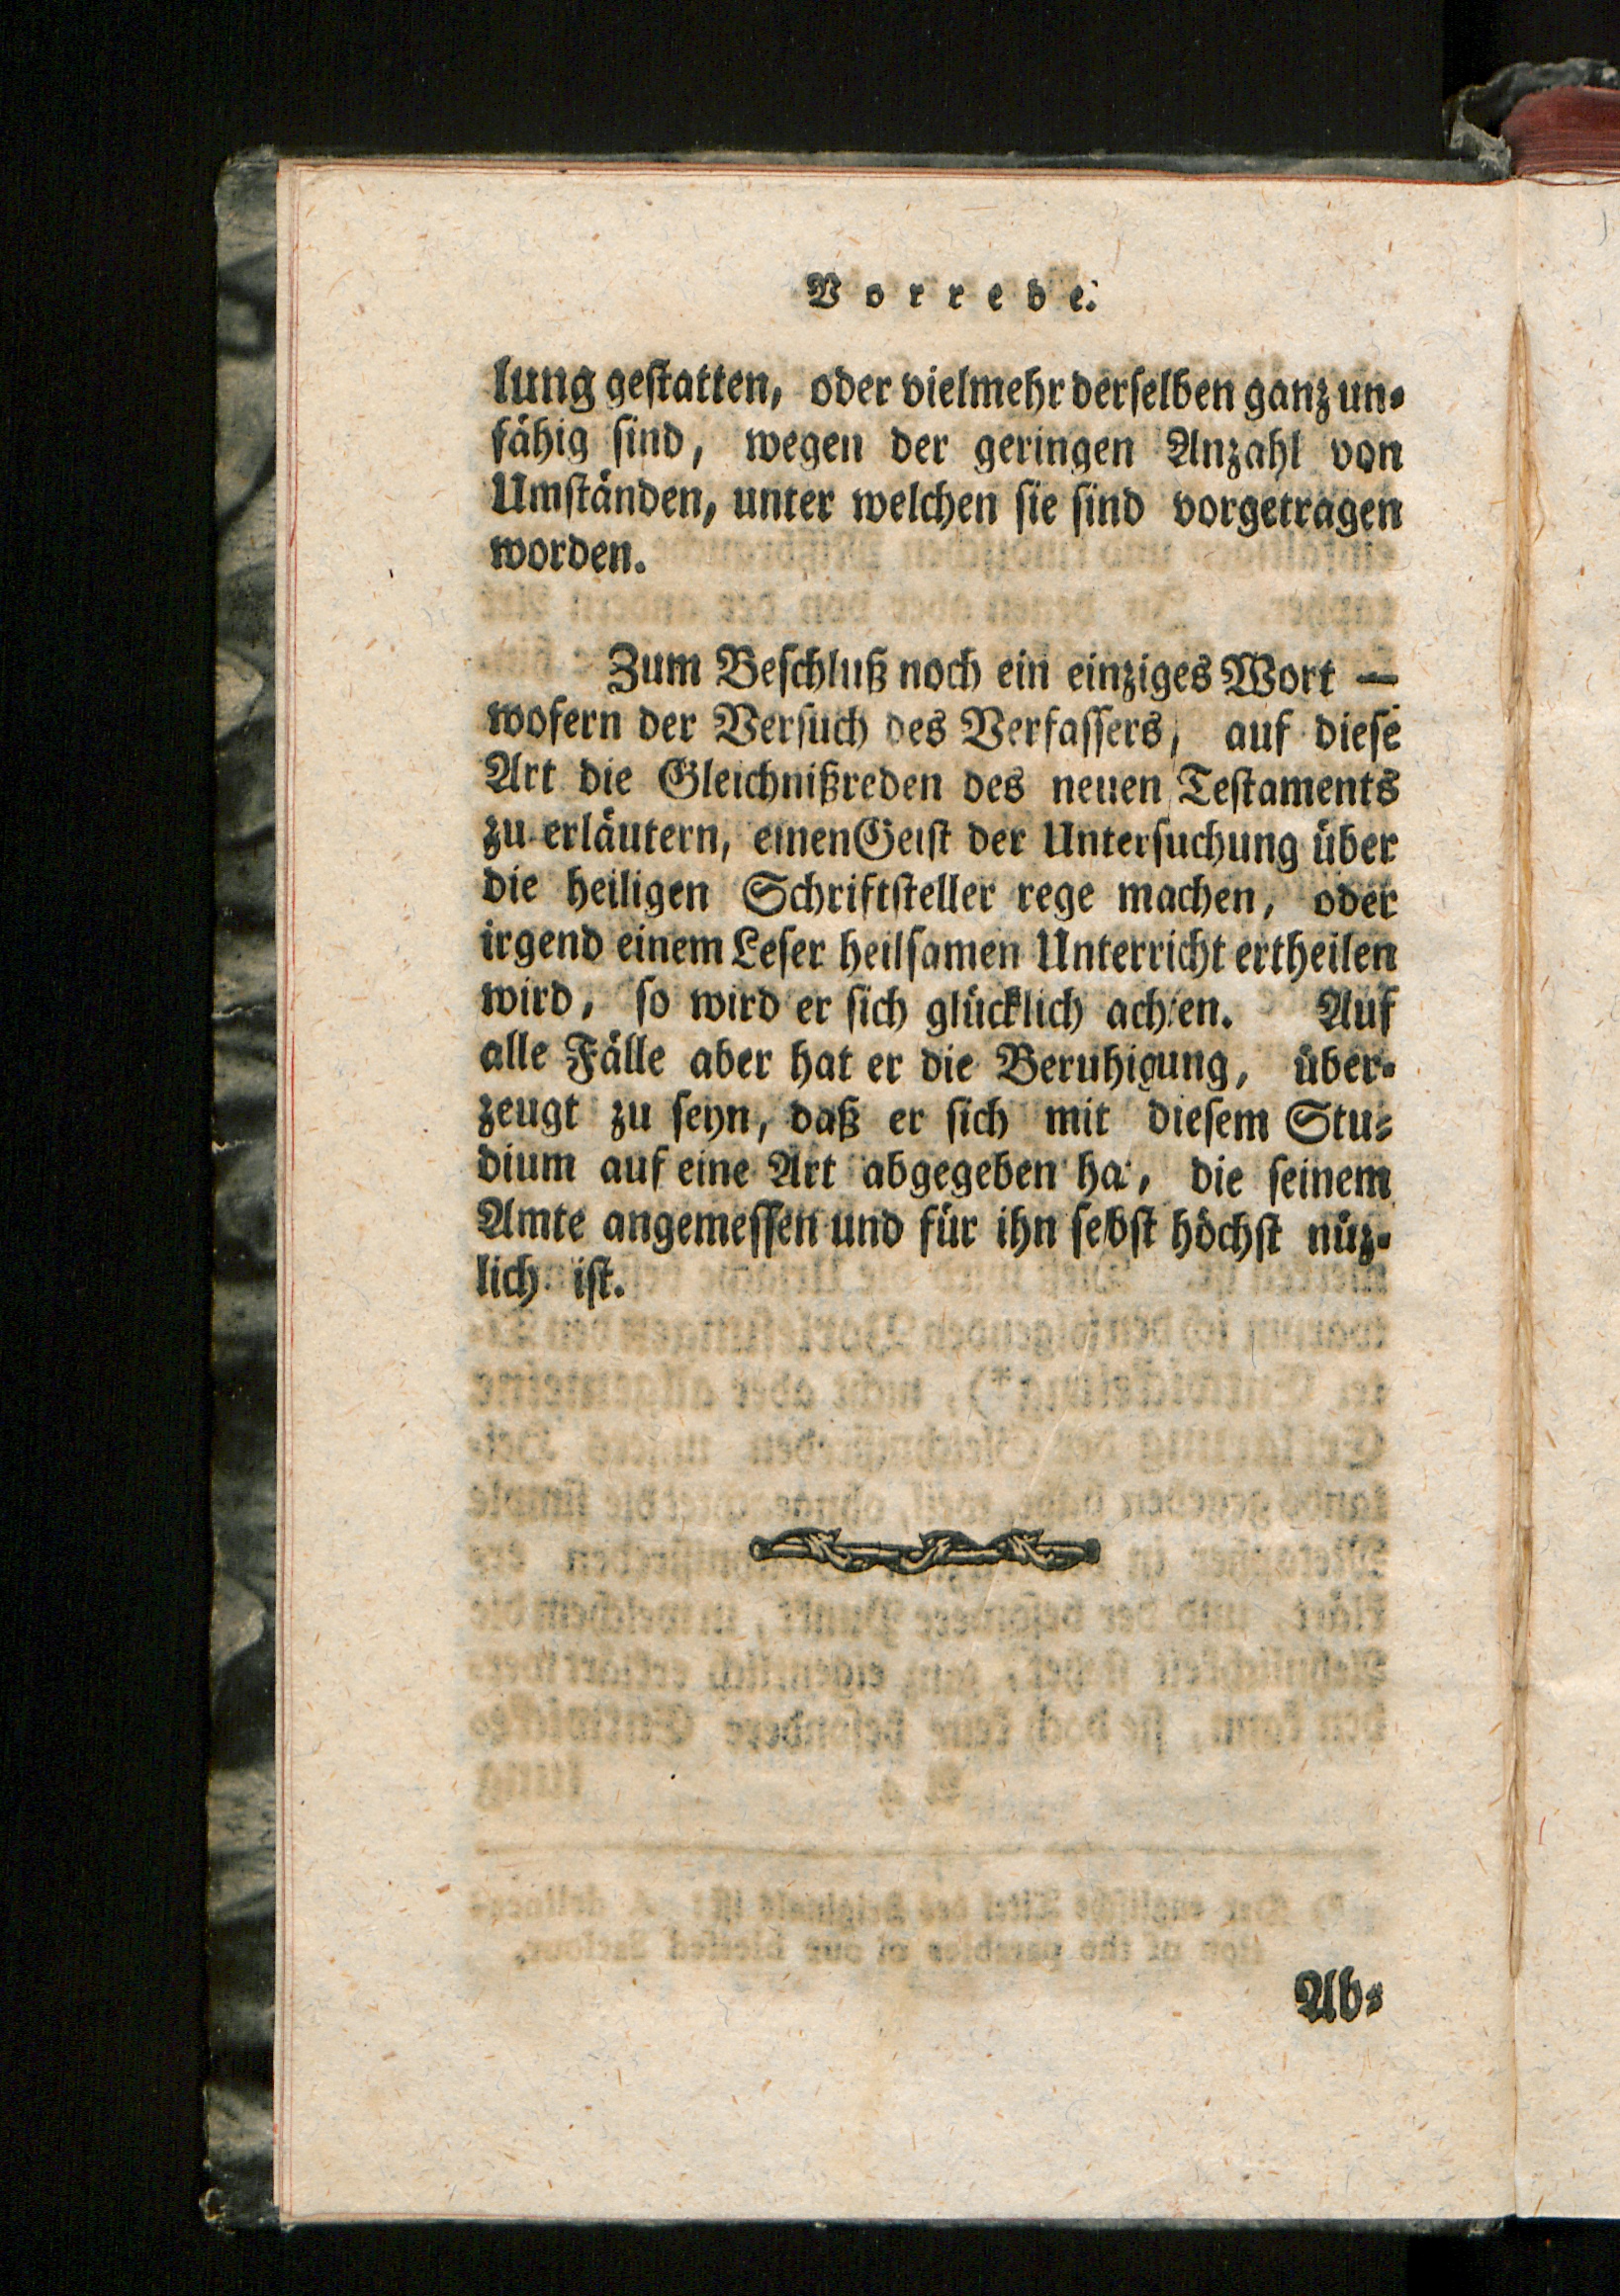 Vorrede.
lung gestatten, oder vielmehr derselben ganz un-
fähig sind, wegen der geringen Anzahl von
Umständen, unter welchen sie sind vorgetragen
worden.
Zum Beschluß noch ein einziges Wort —
wofern der Versuch des Verfassers, auf diese
Art die Gleichnißreden des neuen Testaments
zu erläutern, einen Geist der Untersuchung über
die heiligen Schriftsteller rege machen, oder
irgend einem Leser heilsamen Unterricht ertheilen
wird, so wird er sich glücklich achten. Auf
alle Fälle aber hat er die Beruhigung, über-
zeugt zu seyn, daß er sich mit diesem Stu-
dium auf eine Art abgegeben hat, die seinem
Amte angemessen und für ihn sebst höchst nüz-
lich ist.
Ab-